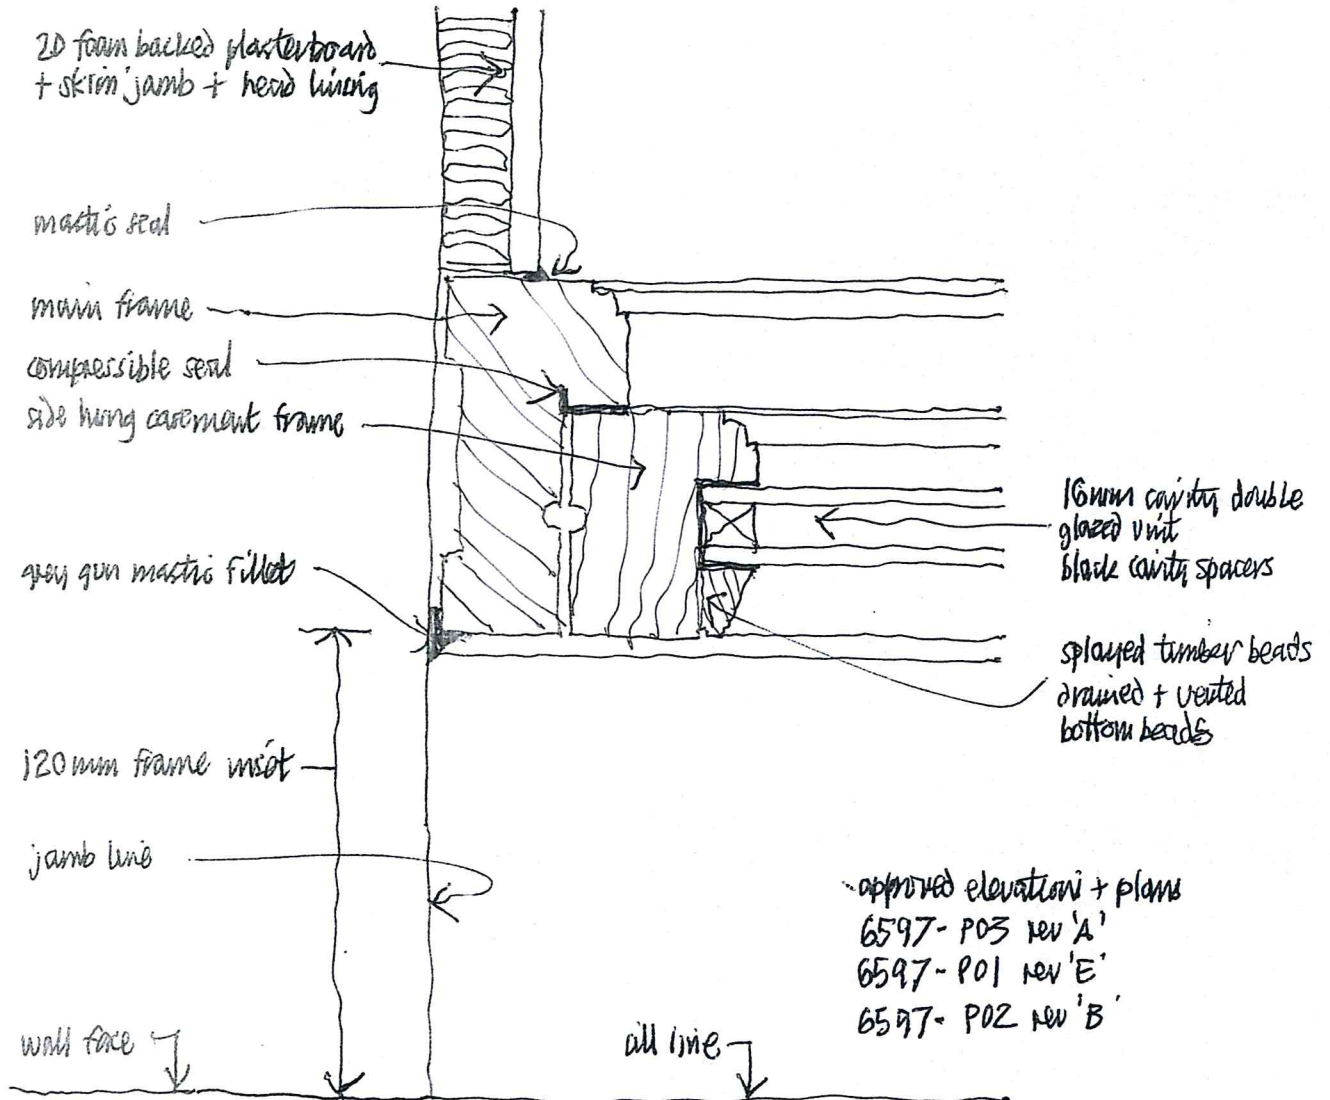 20 foam backed plasterboard
+ skim jamb + head lining
mastic seal
main frame
compressible seal
side hung casement frame
grey gun mastic fillet
120mm frame inset
jamb line
wall face
cill line
16mm cavity double
glazed unit
black cavity spacers
splayed timber beads
drained + vented
bottom beads
approved elevation + plans
6597- P03 rev 'A'
6597- P01 rev 'E'
6597- P02 rev 'B'